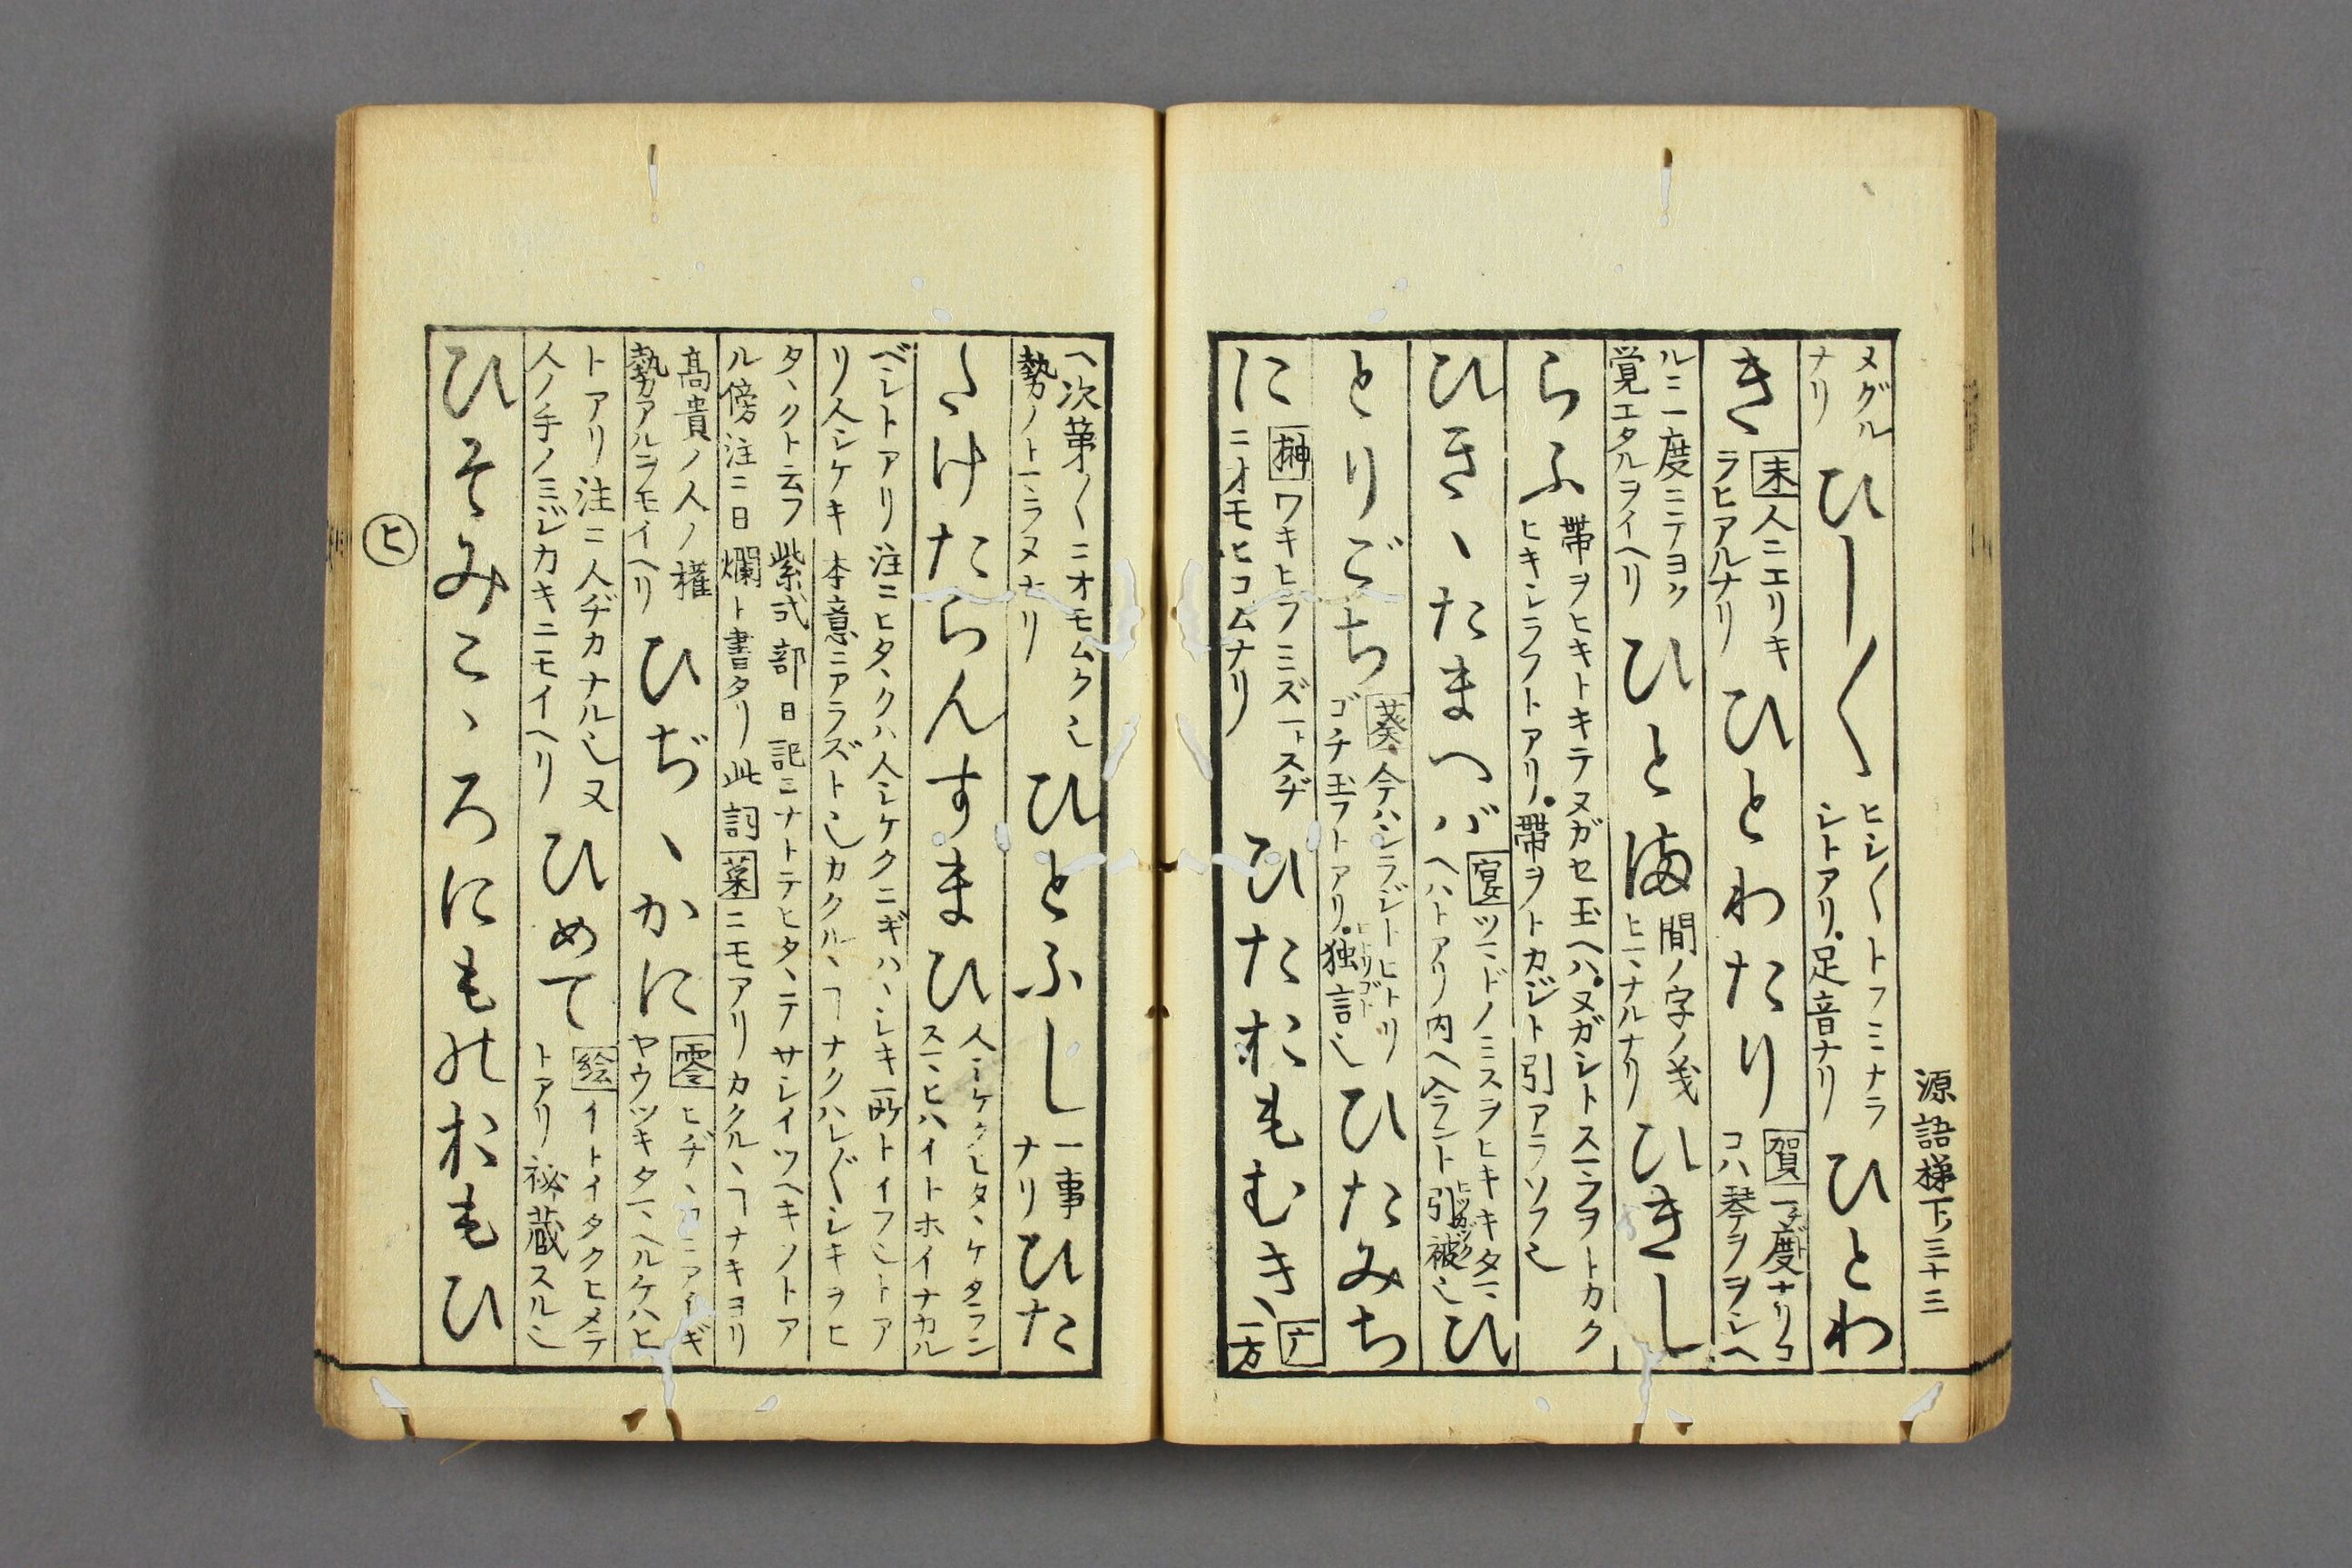 源語梯下ノ三十三
ヌグル
ナリ
ひし〳〵
ヒシ〳〵トフミナラ
シトアリ。足音ナリ
ひとわ
き
末 人ニエリキ
ラヒアルナリ
ひとわたり
賀 一ワタリ度ナリコ
コハ琴ヲヲシヘ
ルニ一度ニテヨク
覚エタルヲイヘリ
ひとま
間ノ字ノ義
ヒマナルナリ
ひきし
らふ
帯ヲヒキトキテヌガセ玉ヘハ。ヌガシトスマヲトカク
ヒキシラフトアリ。帯ヲトカジト引アラソフ也
ひきゝたまへバ
宴 ツマドノミスヲヒキキタマ
ヘハトアリ内ヘ入ラント引被也
ひ
とりごち
葵 今ハシラジトヒトリ
ゴチ玉フトアリ。独言也
ヒトリゴト
ひたみち
に
榊 ワキヒラミズ一トスヂ
ニオモヒコムナリ
ひたおもむきゝ
一方
ヘ次第〳〵ニオモムク也
勢ノトマラヌナリ
ひとふし
一事
ナリ
ひた
ゝけたらんすまひ
人シケクヒタヽケタラン
スマヒハイトホイナカル
ベシトアリ注ニヒタヽクハ人シケクニギハヽシキ所トイフ也トア
リ人シケキ本意ニアラズト也カクルヽヿナクハレ〴〵シキヲヒ
タヽクト云フ紫式部日記ニナトテヒタヽテサレイツヘキソトア
ル傍注ニ日爛ト書タリ此詞 葉 ニモアリカクルヽヿナキヨリ
高貴ノ人ノ権
勢アルヲモイヘリ
ひぢゝかに
零 ヒヂヽカニアイギ
ヤウツキタマヘルケハヒ
トアリ注ニ人ヂカナル也又
人ノ手ノミジカキニモイヘリ
ひめて
絵 イトイタクヒメテ
トアリ秘蔵スル也
ひそみこゝろにものおもひ
ヒ